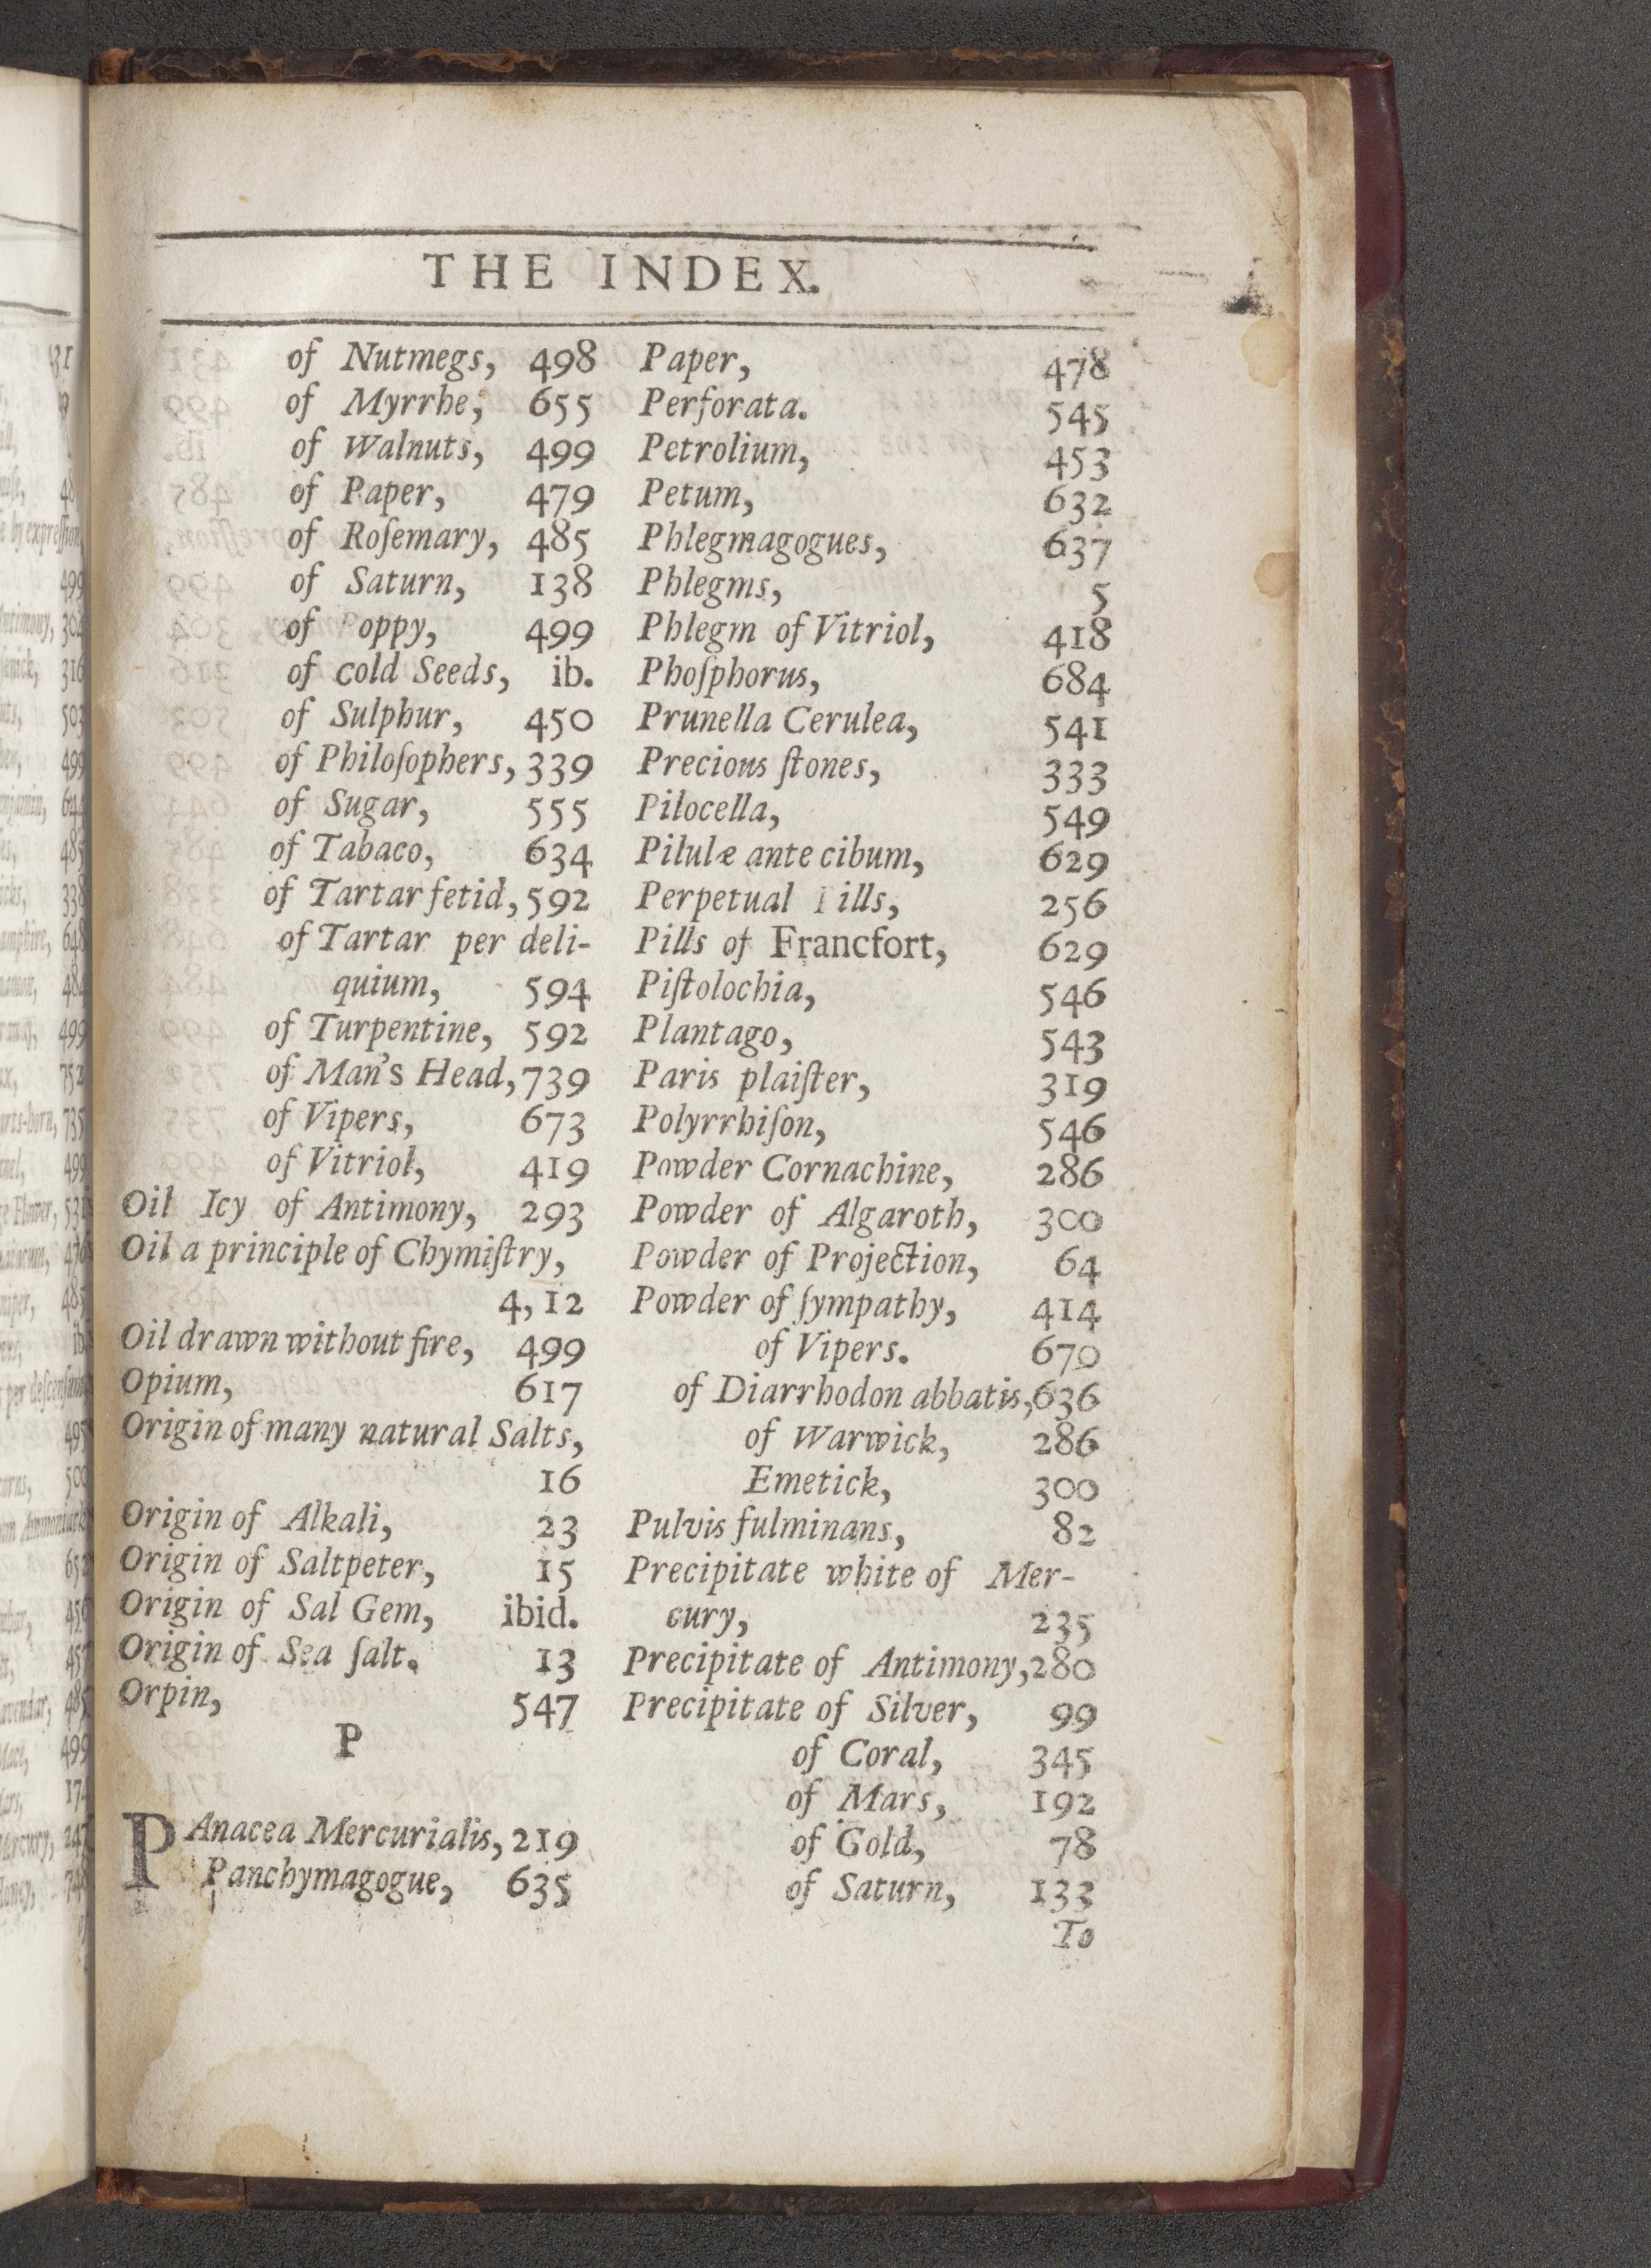 THE INDEX.
of Nutmegs, 498
of Myrrhe, 655
of Walnuts, 499
of Paper, 479
of Roſemary, 485
of Saturn, 138
of Poppy, 499
of cold Seeds, ib.
of Sulphur, 450
of Philoſophers, 339
of Sugar, 555
of Tabaco, 634
of Tartar fetid, 592
of Tartar per deli-
quium, 594
of Turpentine, 592
of Man's Head, 739
of Vipers, 673
of Vitriol, 419
Oil Icy of Antimony, 293
Oil a principle of Chymiſtry,
4, 12
Oil drawn without fire, 499
Opium, 617
Origin of many natural Salts,
16
Origin of Alkali, 23
Origin of Saltpeter, 15
Origin of Sal Gem, ibid.
Origin of Sea ſalt. 13
Orpin, 547
P
PAnacea Mercurialis, 219
Panchymagogue, 635
Paper, 478
Perforata. 545
Petrolium, 453
Petum, 632
Phlegmagogues, 637
Phlegms, 5
Phlegm of Vitriol, 418
Phoſphorus, 684
Prunella Cerulea, 541
Precious ſtones, 333
Pilocella, 549
Pilulæ ante cibum, 629
Perpetual Pills, 256
Pills of Francfort, 629
Piſtolochia, 546
Plantago, 543
Paris plaiſter, 319
Polyrrhiſon, 546
Powder Cornachine, 286
Powder of Algaroth, 300
Powder of Projection, 64
Powder of ſympathy, 414
of Vipers. 670
of Diarrhodon abbatis, 636
of Warwick, 286
Emetick, 300
Pulvis fulminans, 82
Precipitate white of Mer-
cury, 235
Precipitate of Antimony, 280
Precipitate of Silver, 99
of Coral, 345
of Mars, 192
of Gold, 78
of Saturn, 133
To